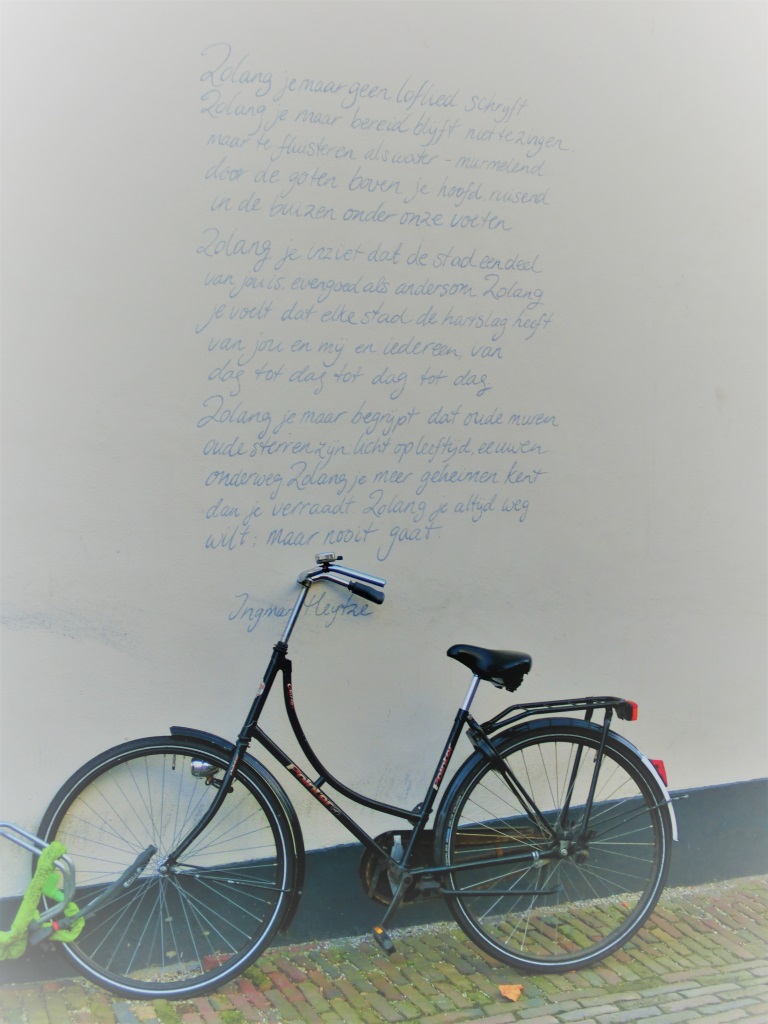 Zolang je maar geen loflied schrijft
Zolang je maar bereid blijft niet te zingen
maar te fluisteren als water - murmelend
door de goten boven je hoofd, ruisend
in de buizen onder onze voeten
Zolang je inziet dat de stad een deel
van jou is, evengoed als andersom. Zolang
je voelt dat elke stad de hartslag heeft
van jou en mij en iedereen, van
dag tot dag tot dag tot dag
Zolang je maar begrijpt dat oude muren
oude sterren zijn, licht op leeftijd, eeuwen
onderweg. Zolang je meer geheimen kent
dan je verraadt. Zolang je altijd weg
wilt; maar nooit gaat.
Ingmar Heytze
Pointer
Pointer